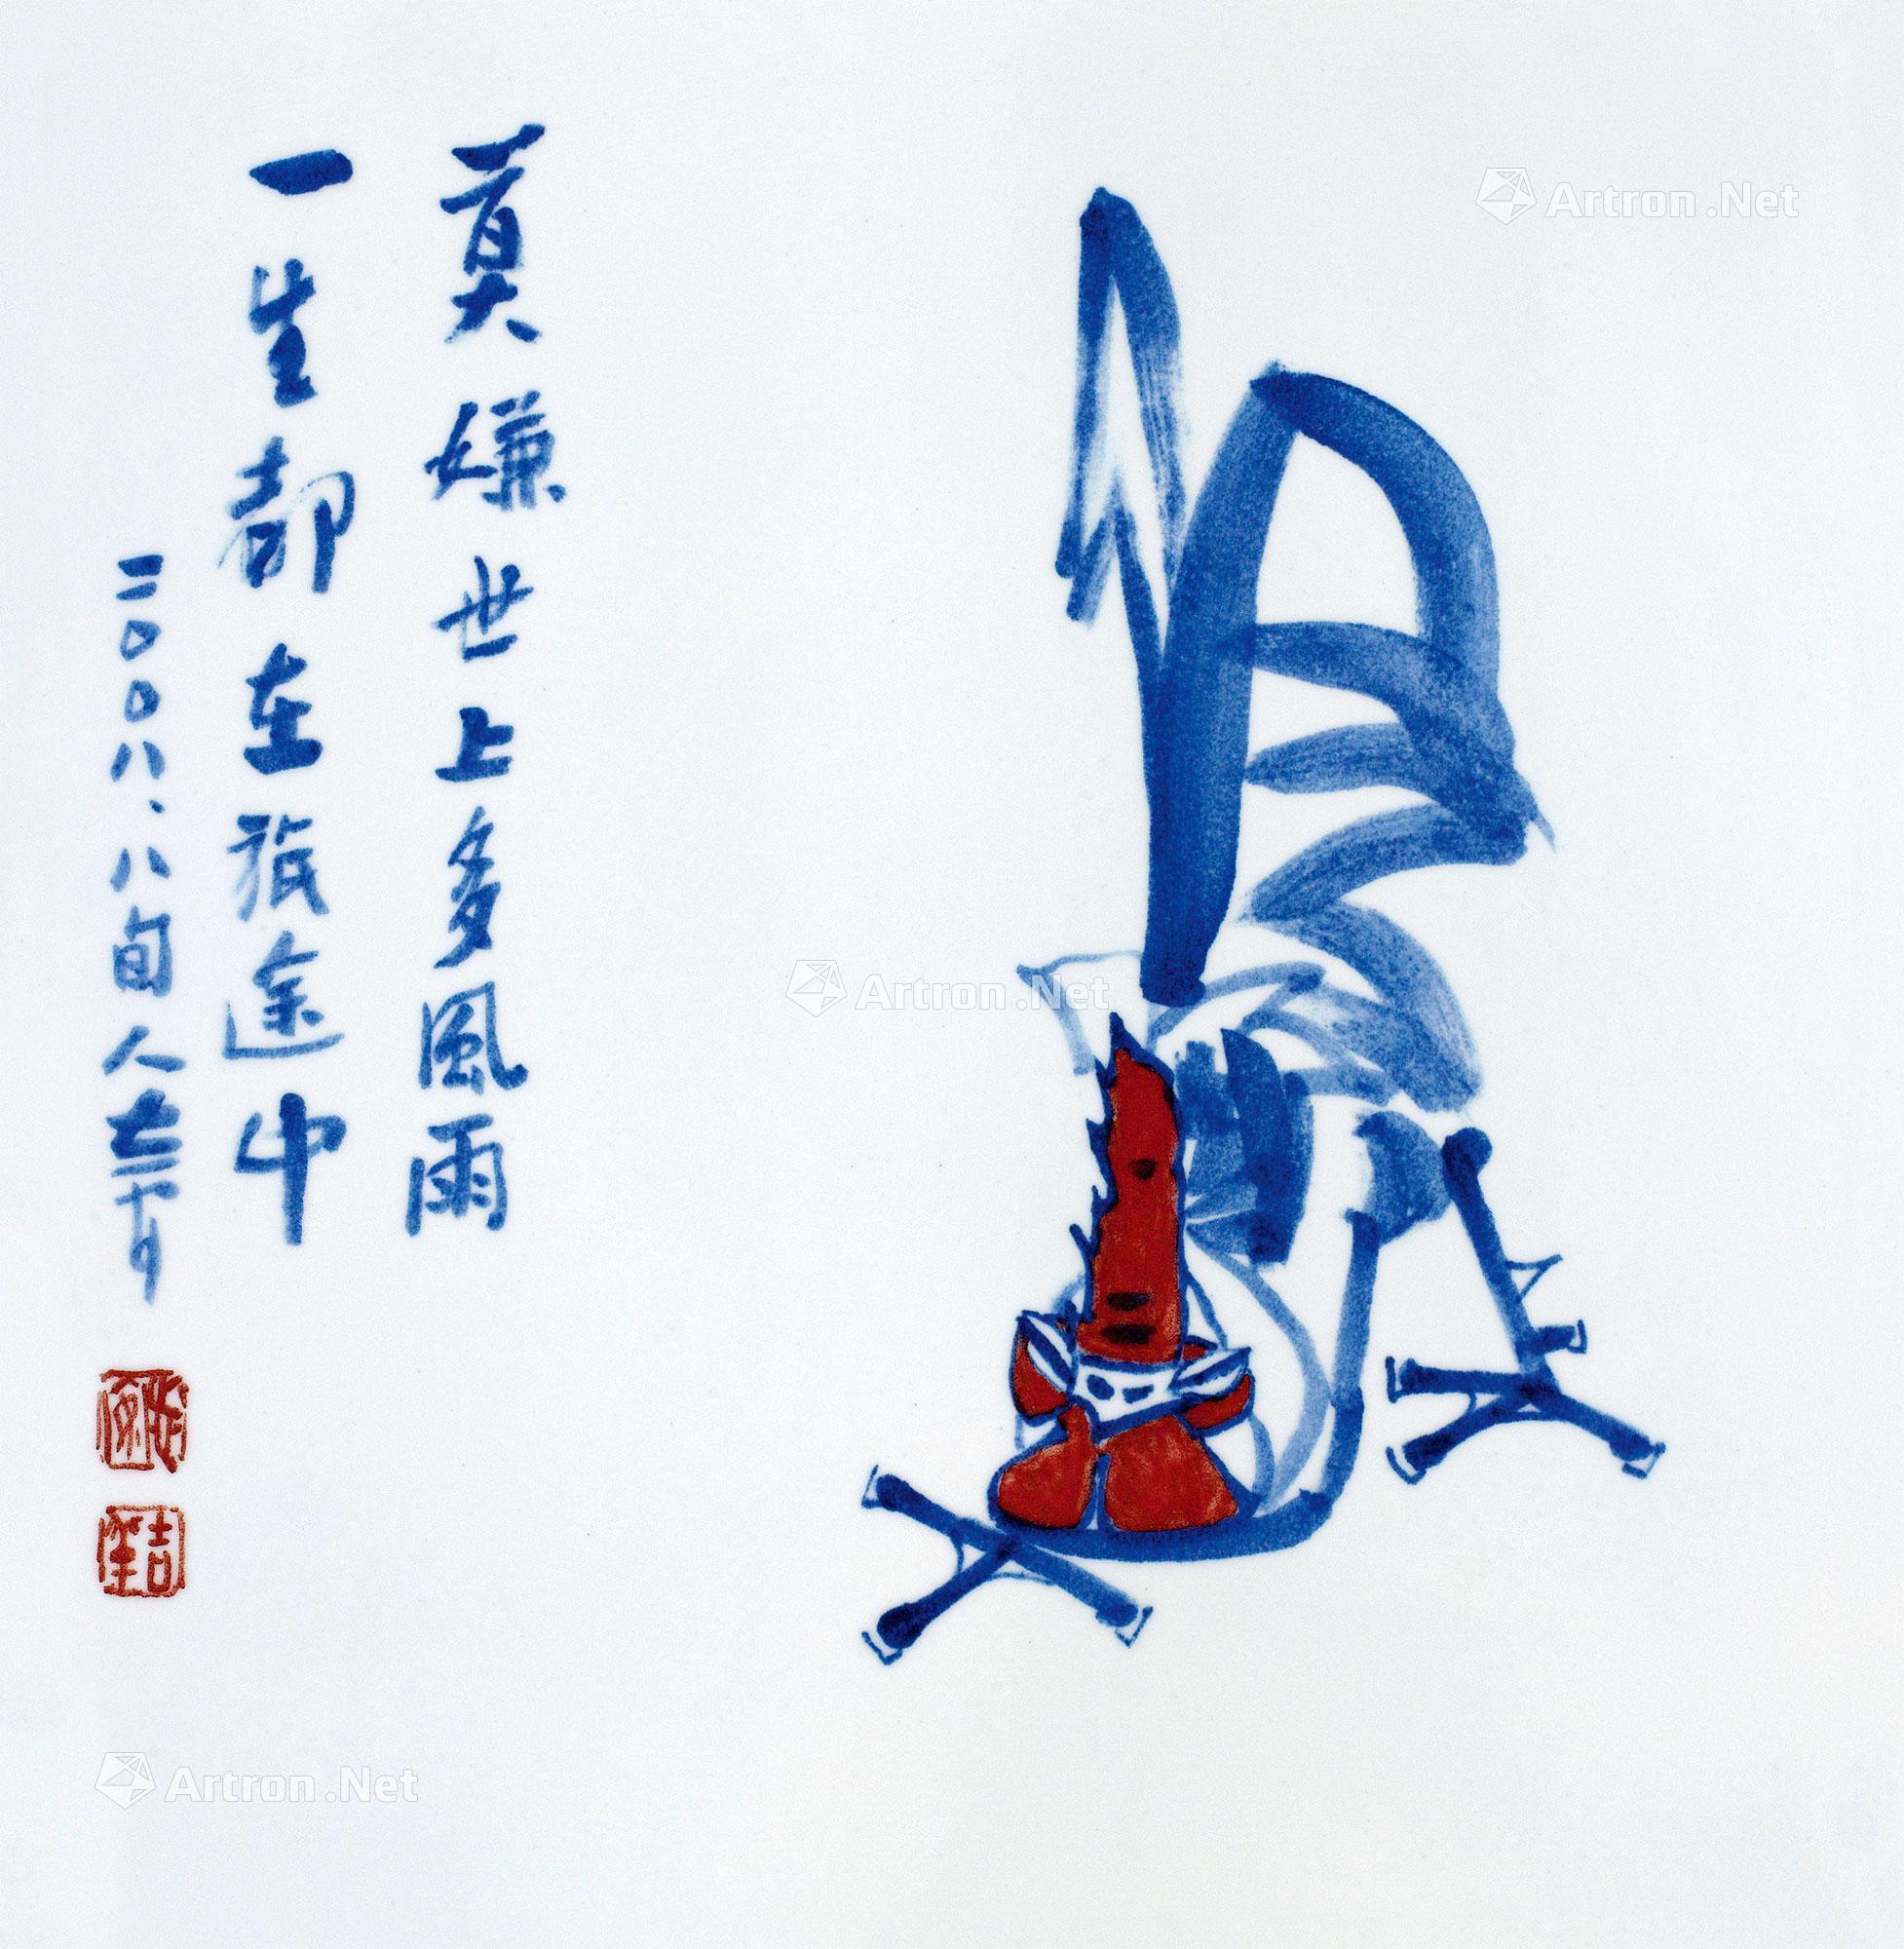 莫嫌世上多風雨
一生都在旅途中
二〇〇八、八旬人
Artron.Net
Artron.Net
Artron.Net